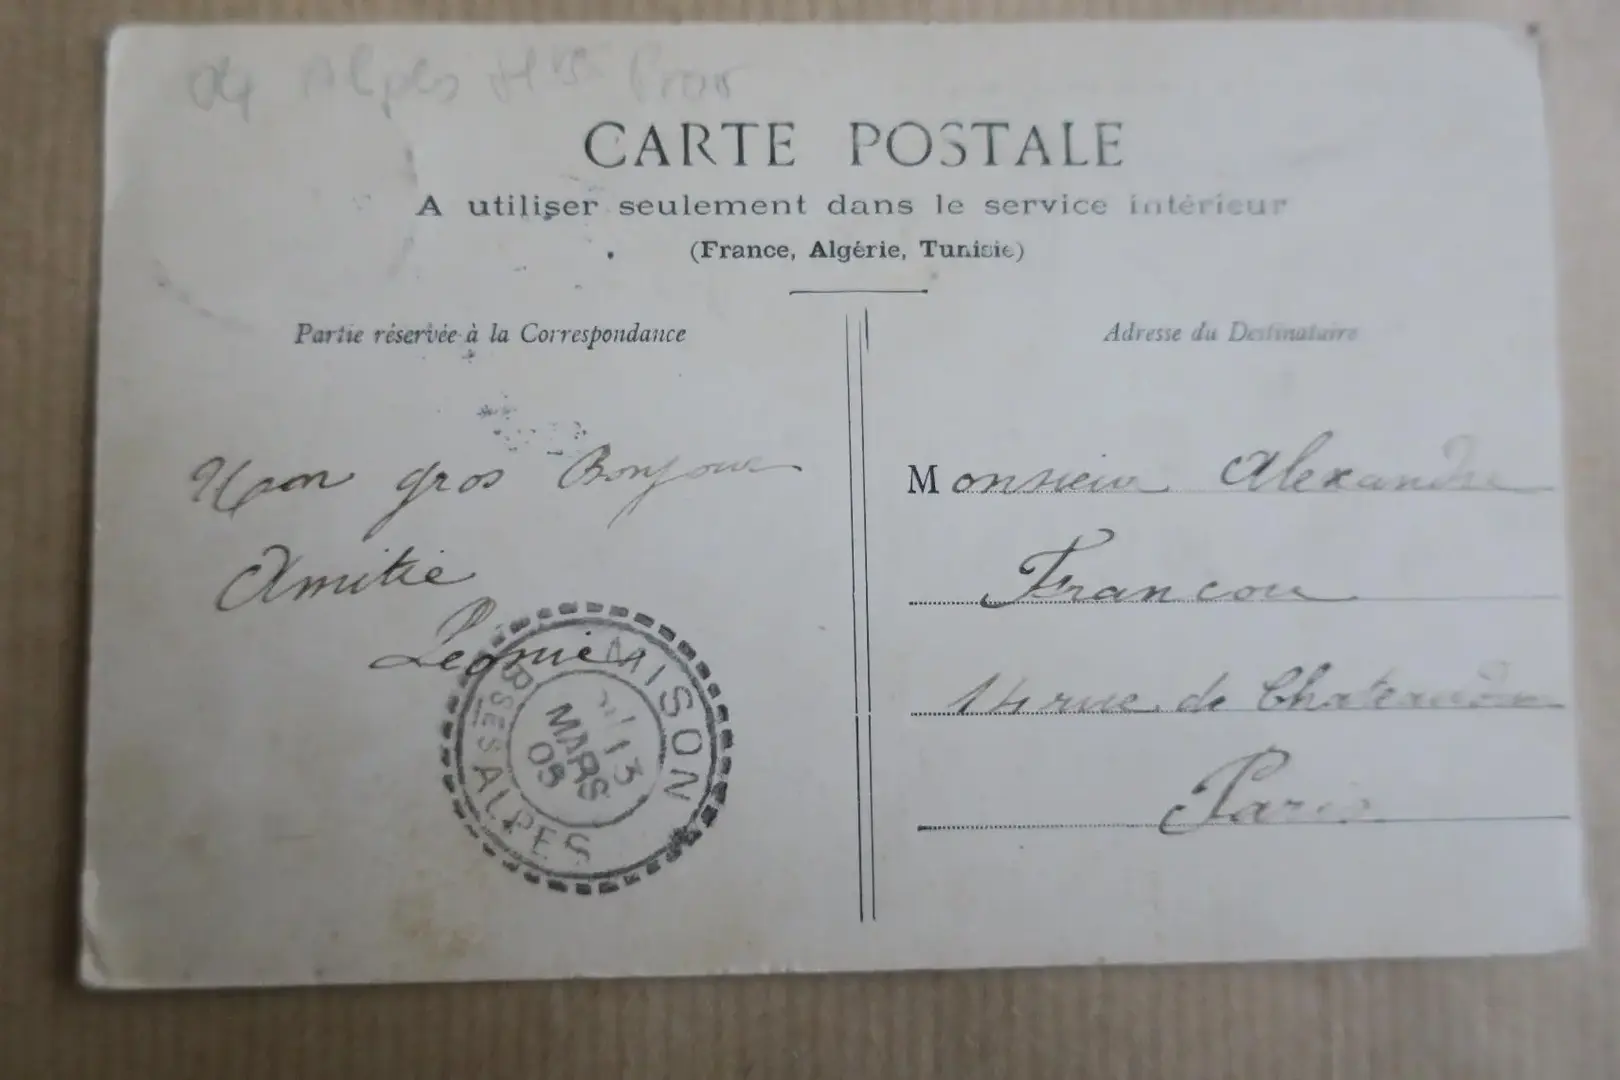 04 Alpes Hte Prov
CARTE POSTALE
A utiliser seulement dans le service intérieur
(France, Algérie, Tunisie)
Partie réservée à la Correspondance
Adresse du Destinataire
Mon gros Bonjour
Amitié
Léonie
MISON
13
MARS
05
BSES ALPES
Monsieur Alexandre
Francou
14 rue de Chateaudun
Paris